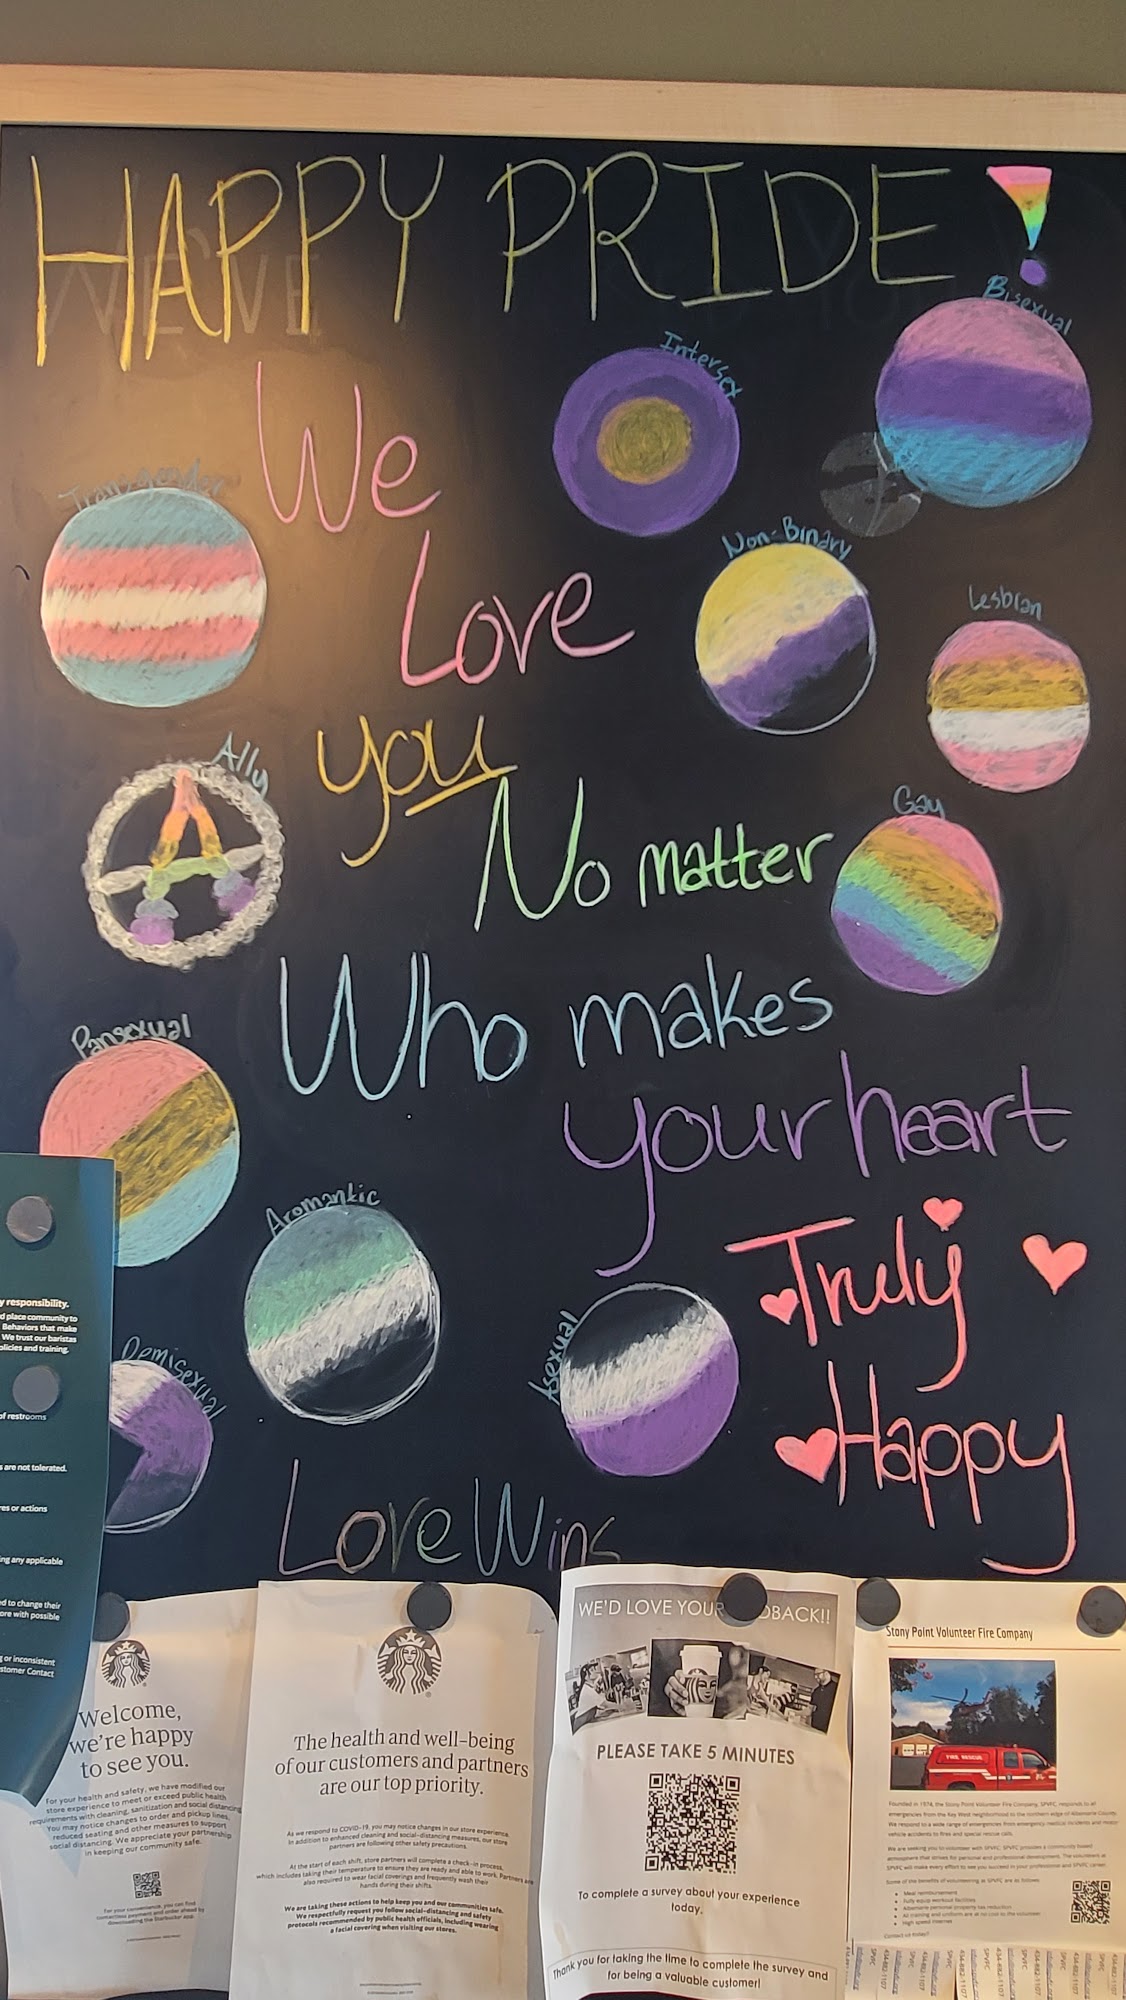 HAPPY PRIDE!
Bisexual
Intersex
We
Transgender
Love
Non-Binary
Lesbian
you
Ally
No matter
Gay
Who makes
Pansexual
your heart
Aromantic
Truly
Asexual
Demisexual
Happy
Love Wins
y responsibility.
d place community to
Behaviors that make
We trust our baristas
olicies and training.
of restrooms
s are not tolerated.
res or actions
ing any applicable
ed to change their
ore with possible
g or inconsistent
stomer Contact
Welcome,
we're happy
to see you.
For your health and safety, we have modified our
store experience to meet or exceed public health
requirements with cleaning, sanitization and social distancing.
You may notice changes to order and pickup lines,
reduced seating and other measures to support
social distancing. We appreciate your partnership
in keeping our community safe.
For your convenience, you can find
contactless payment and order ahead by
downloading the Starbucks® App.
The health and well-being
of our customers and partners
are our top priority.
As we respond to COVID-19, you may notice changes in our store experience.
In addition to enhanced cleaning and social-distancing measures, our store
partners are following other safety precautions.
At the start of each shift, store partners will complete a check-in process,
which includes taking their temperature to ensure they are ready and able to work. Partners are
also required to wear facial coverings and frequently wash their
hands during their shifts.
We are taking these actions to help keep you and our communities safe.
We respectfully request you follow social-distancing and safety
protocols recommended by public health officials, including wearing
a facial covering when visiting our stores.
WE'D LOVE YOUR DBACK!!
PLEASE TAKE 5 MINUTES
To complete a survey about your experience
today.
Thank you for taking the time to complete the survey and
for being a valuable customer!
Stony Point Volunteer Fire Company
FIRE RESCUE
Founded in 1974, the Stony Point Volunteer Fire Company, SPVFC, responds to all
emergencies from the Key West neighborhood to the northern edge of Albemarle County.
We respond to a wide range of emergencies from emergency medical incidents and motor
vehicle accidents to fires and special rescue calls.
We are seeking you to volunteer with SPVFC. SPVFC provides a community based
atmosphere that strives for personal and professional development. The volunteers at
SPVFC will make every effort to see you succeed in your professional and SPVFC career.
Some of the benefits of volunteering at SPVFC are as follows:
Meal reimbursement
Fully equip workout facilities
Albemarle personal property tax reduction
All training and uniform are at no cost to the volunteer
High speed internet
Contact us today!
SPVFC
434-882-1107